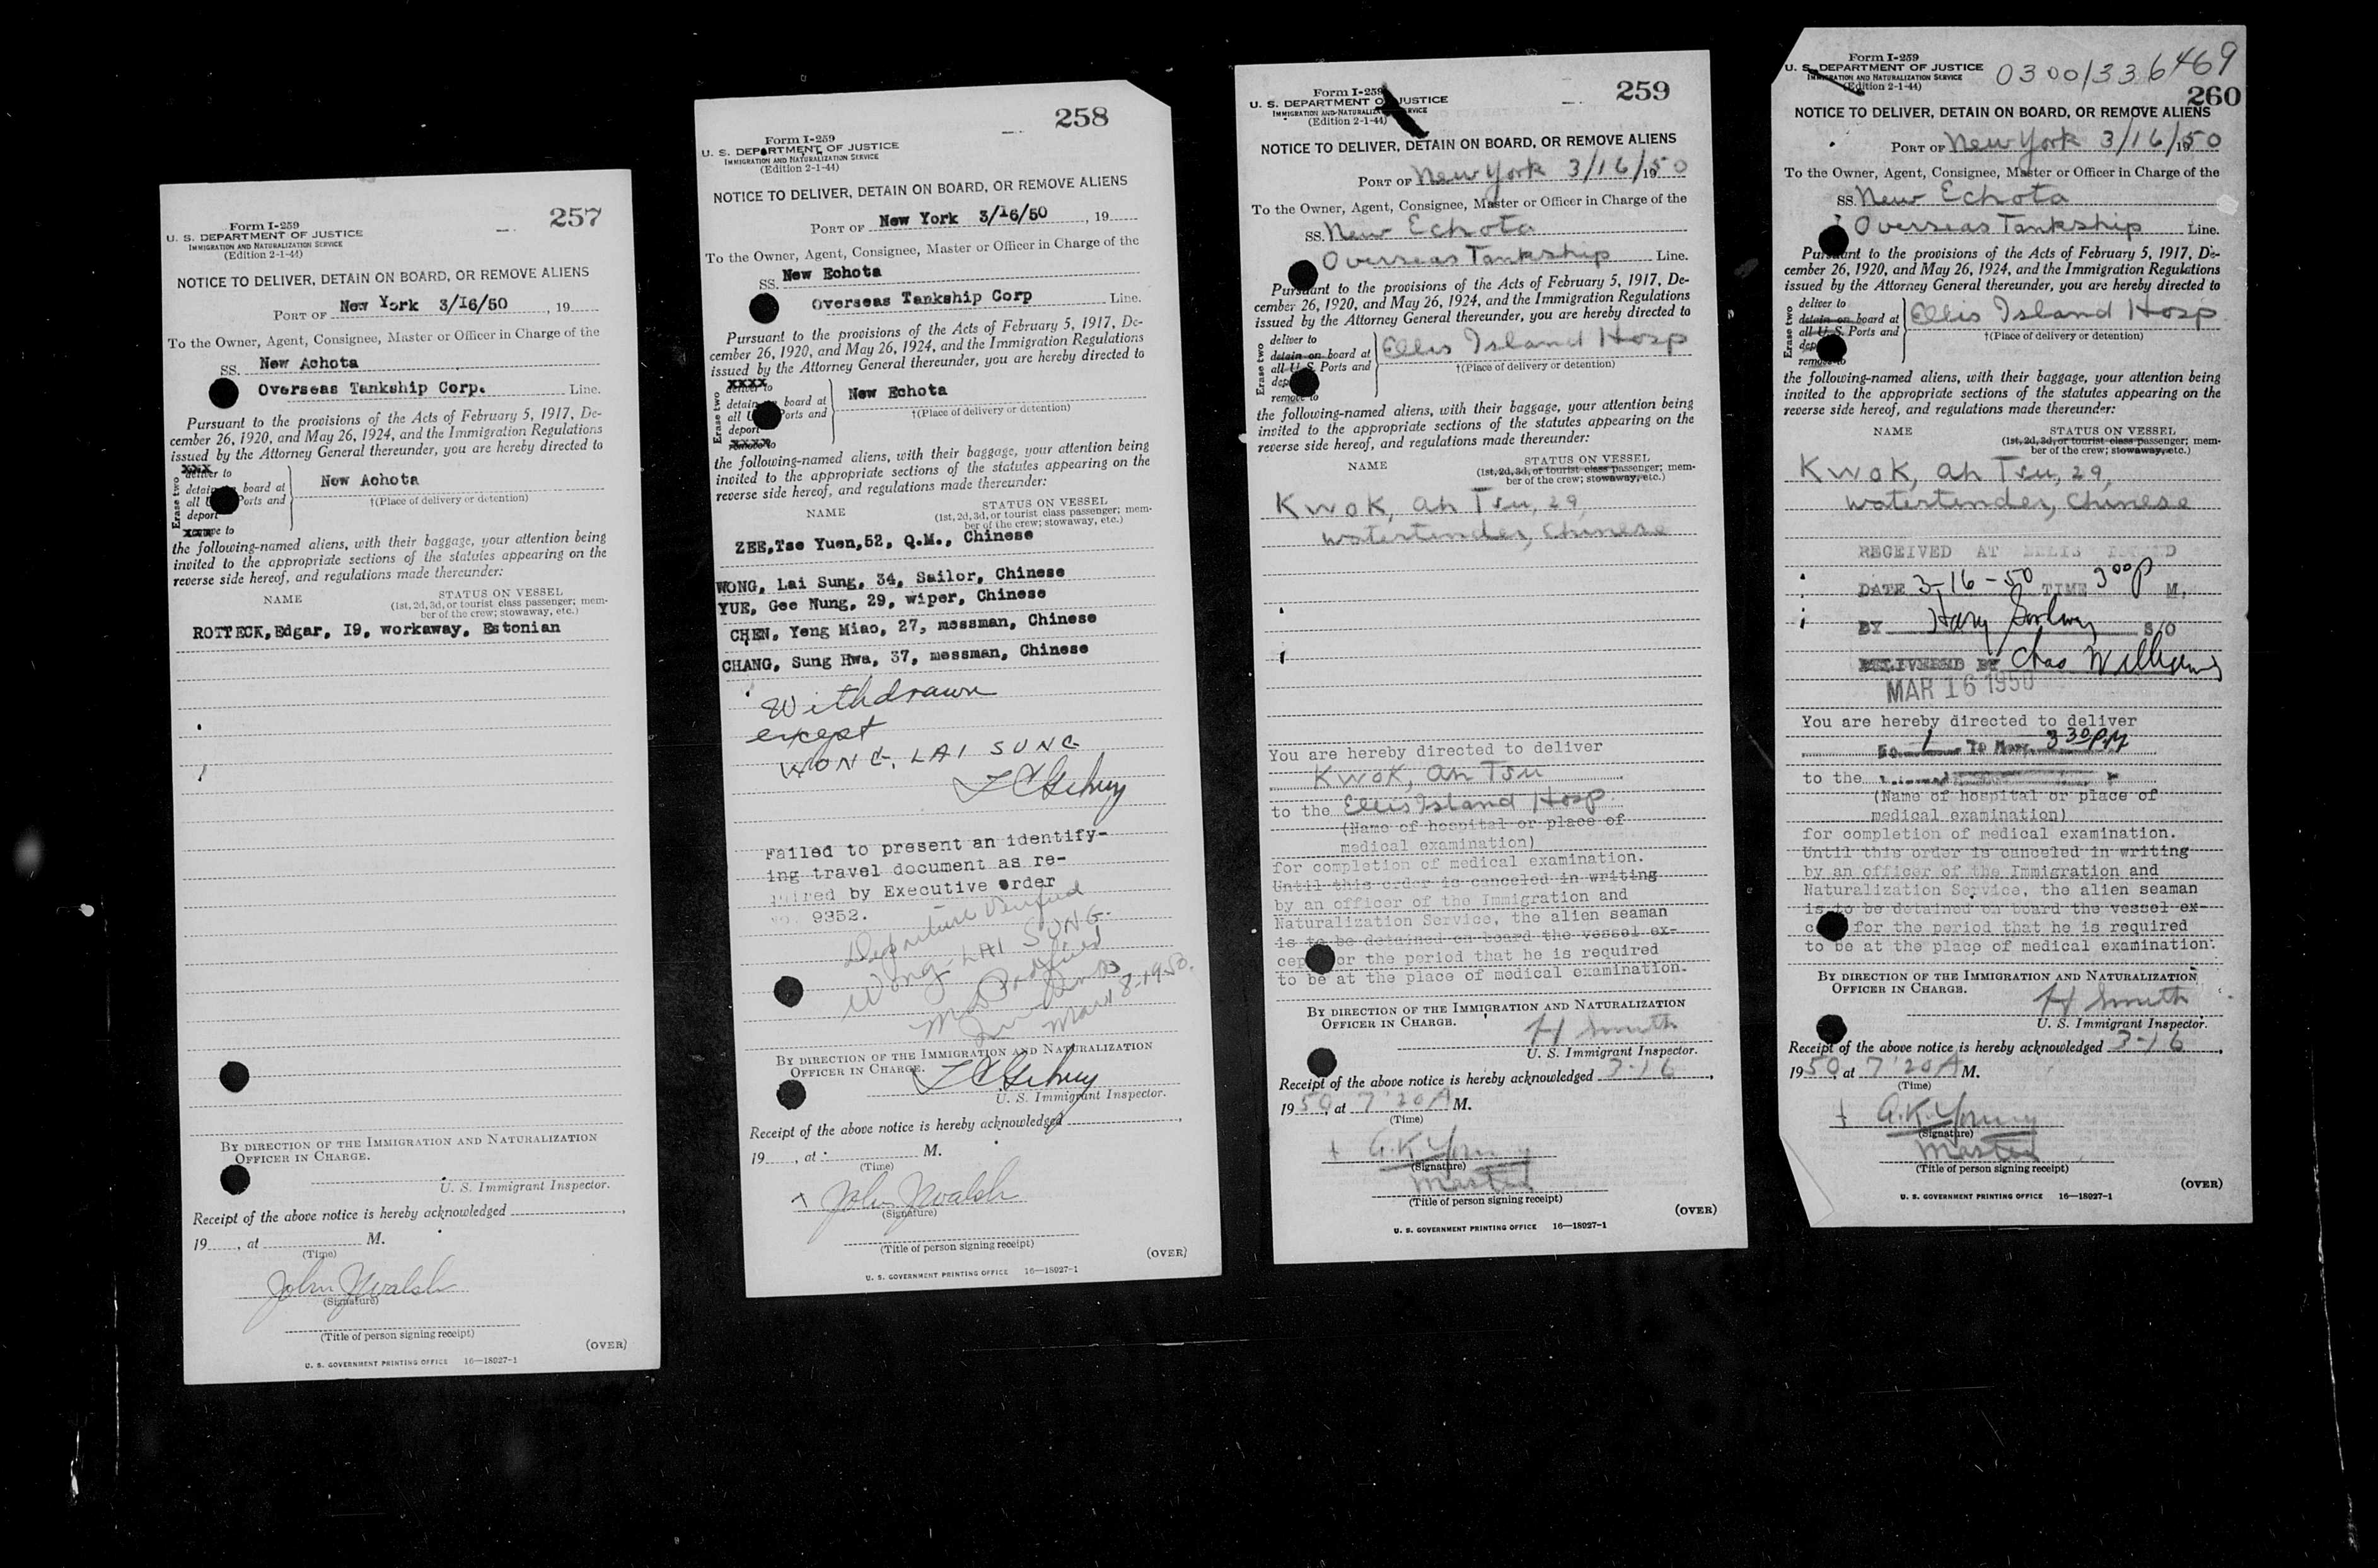 257
Form I-259
U. S. DEPARTMENT OF JUSTICE
IMMIGRATION AND NATURALIZATION SERVICE
(Edition 2-1-44)
NOTICE TO DELIVER, DETAIN ON BOARD, OR REMOVE ALIENS
PORT OF New York 3/16/50, 19
To the Owner, Agent, Consignee, Master or Officer in Charge of the
SS. New Achota
Overseas Tankship Corp. Line.
Pursuant to the provisions of the Acts of February 5, 1917, De-
cember 26, 1920, and May 26, 1924, and the Immigration Regulations
issued by the Attorney General thereunder, you are hereby directed to
Erase two
deliver to
detain board at
all Ports and
deport
to
New Achota
†(Place of delivery or detention)
the following-named aliens, with their baggage, your attention being
invited to the appropriate sections of the statutes appearing on the
reverse side hereof, and regulations made thereunder:
NAME
STATUS ON VESSEL
(1st, 2d, 3d, or tourist class passenger; mem-
ber of the crew; stowaway, etc.)
ROTTECK,Edgar, I9, workaway, Estonian
BY DIRECTION OF THE IMMIGRATION AND NATURALIZATION
OFFICER IN CHARGE.
U. S. Immigrant Inspector.
Receipt of the above notice is hereby acknowledged
19, at M.
(Time)
John J Walsh
(Signature)
(Title of person signing receipt)
(OVER)
U. S. GOVERNMENT PRINTING OFFICE 16—18027-1
258
Form I-259
U. S. DEPARTMENT OF JUSTICE
IMMIGRATION AND NATURALIZATION SERVICE
(Edition 2-1-44)
NOTICE TO DELIVER, DETAIN ON BOARD, OR REMOVE ALIENS
PORT OF New York 3/16/50, 19
To the Owner, Agent, Consignee, Master or Officer in Charge of the
SS. New Echota
Overseas Tankship Corp Line.
Pursuant to the provisions of the Acts of February 5, 1917, De-
cember 26, 1920, and May 26, 1924, and the Immigration Regulations
issued by the Attorney General thereunder, you are hereby directed to
Erase two
deliver to
detain board at
all Ports and
deport
remove to
New Echota
†(Place of delivery or detention)
the following-named aliens, with their baggage, your attention being
invited to the appropriate sections of the statutes appearing on the
reverse side hereof, and regulations made thereunder:
NAME
STATUS ON VESSEL
(1st, 2d, 3d, or tourist class passenger; mem-
ber of the crew; stowaway, etc.)
ZEE,Tse Yuen,52, Q.M., Chinese
WONG, Lai Sung, 34, Sailor, Chinese
YUE, Gee Nung, 29, wiper, Chinese
CHEN, Yeng Miao, 27, messman, Chinese
CHANG, Sung Hwa, 37, messman, Chinese
Withdrawn
except
WONG, LAI SUNG
Failed to present an identify-
ing travel document as re-
quired by Executive Order
No. 9352.
Departure Verified
Wong LAI SUNG
Mar 8-1950.
BY DIRECTION OF THE IMMIGRATION AND NATURALIZATION
OFFICER IN CHARGE.
U. S. Immigrant Inspector.
Receipt of the above notice is hereby acknowledged
19, at M.
(Time)
John J Walsh
(Signature)
(Title of person signing receipt)
(OVER)
U. S. GOVERNMENT PRINTING OFFICE 16—18027-1
259
Form I-259
U. S. DEPARTMENT OF JUSTICE
IMMIGRATION AND NATURALIZATION SERVICE
(Edition 2-1-44)
NOTICE TO DELIVER, DETAIN ON BOARD, OR REMOVE ALIENS
PORT OF New York 3/16/1950
To the Owner, Agent, Consignee, Master or Officer in Charge of the
SS. New Echota
Overseas Tankship Line.
Pursuant to the provisions of the Acts of February 5, 1917, De-
cember 26, 1920, and May 26, 1924, and the Immigration Regulations
issued by the Attorney General thereunder, you are hereby directed to
Erase two
deliver to
detain on board at
all U. S. Ports and
dep
remove to
Ellis Island Hosp
†(Place of delivery or detention)
the following-named aliens, with their baggage, your attention being
invited to the appropriate sections of the statutes appearing on the
reverse side hereof, and regulations made thereunder:
NAME
STATUS ON VESSEL
(1st, 2d, 3d, or tourist class passenger; mem-
ber of the crew; stowaway, etc.)
Kwok, Ah Tsu, 29,
watertender, Chinese
You are hereby directed to deliver
Kwok, Ah Tsu
to the Ellis Island Hosp.
(Name of hospital or place of
medical examination)
for completion of medical examination.
Until this order is canceled in writing
by an officer of the Immigration and
Naturalization Service, the alien seaman
is to be detained on board the vessel ex-
cept for the period that he is required
to be at the place of medical examination.
BY DIRECTION OF THE IMMIGRATION AND NATURALIZATION
OFFICER IN CHARGE.
H Smith
U. S. Immigrant Inspector.
Receipt of the above notice is hereby acknowledged 3-16,
1950, at 7 20 A M.
(Time)
G.K. Young
(Signature)
Master
(Title of person signing receipt)
(OVER)
U. S. GOVERNMENT PRINTING OFFICE 16—18027-1
0300/336469
260
Form I-259
U. S. DEPARTMENT OF JUSTICE
IMMIGRATION AND NATURALIZATION SERVICE
(Edition 2-1-44)
NOTICE TO DELIVER, DETAIN ON BOARD, OR REMOVE ALIENS
PORT OF New York 3/16/1950
To the Owner, Agent, Consignee, Master or Officer in Charge of the
SS. New Echota
Overseas Tankship Line.
Pursuant to the provisions of the Acts of February 5, 1917, De-
cember 26, 1920, and May 26, 1924, and the Immigration Regulations
issued by the Attorney General thereunder, you are hereby directed to
Erase two
deliver to
detain on board at
all U. S. Ports and
dep
remove to
Ellis Island Hosp
†(Place of delivery or detention)
the following-named aliens, with their baggage, your attention being
invited to the appropriate sections of the statutes appearing on the
reverse side hereof, and regulations made thereunder:
NAME
STATUS ON VESSEL
(1st, 2d, 3d, or tourist class passenger; mem-
ber of the crew; stowaway, etc.)
Kwok, Ah Tsu, 29,
watertender, Chinese
RECEIVED AT ELLIS ISLAND
DATE 3-16-50 TIME 3 00 P M.
BY Harry S/O
DELIVERED BY Chas Williams
MAR 16 1950
You are hereby directed to deliver
3 30 PM
to the
(Name of hospital or place of
medical examination)
for completion of medical examination.
Until this order is canceled in writing
by an officer of the Immigration and
Naturalization Service, the alien seaman
is to be detained on board the vessel ex-
for the period that he is required
to be at the place of medical examination.
BY DIRECTION OF THE IMMIGRATION AND NATURALIZATION
OFFICER IN CHARGE.
H Smith
U. S. Immigrant Inspector.
Receipt of the above notice is hereby acknowledged 3-16,
1950, at 7 20 A M.
(Time)
G.K. Young
(Signature)
Master
(Title of person signing receipt)
(OVER)
U. S. GOVERNMENT PRINTING OFFICE 16—18027-1